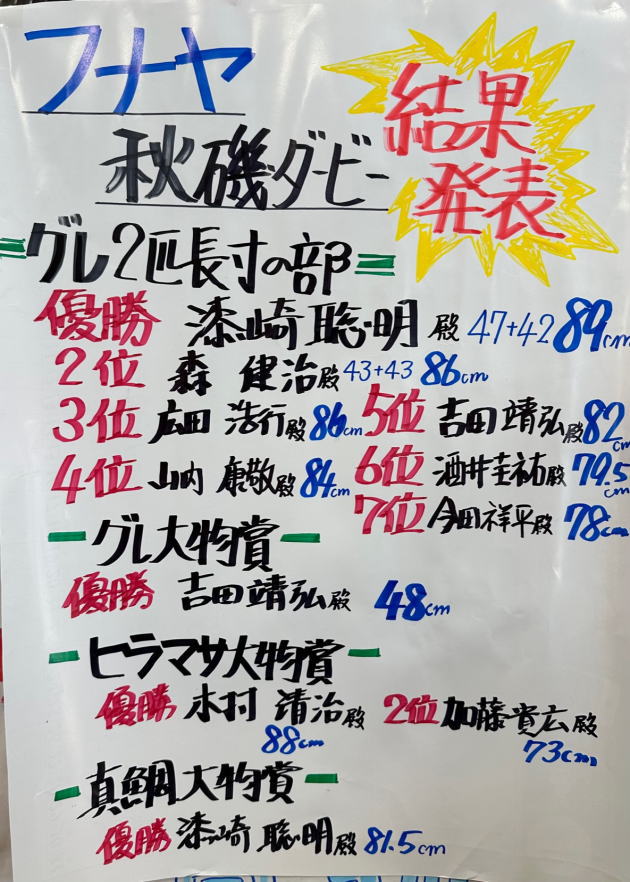 フナヤ
結果
発表
秋磯ダービー
グレ2匹長寸の部
優勝 漆崎聡明殿 47+42 89cm
2位 森健治殿 43+43 86cm
3位 広田浩行殿 86cm 5位 吉田靖弘殿 82cm
4位 山内康敬殿 84cm 6位 酒井圭祐殿 79.5cm
7位 今田祥平殿 78cm
グレ大物賞
優勝 吉田靖弘殿 48cm
ヒラマサ大物賞
優勝 木村靖治殿 2位 加藤貴広殿
88cm 73cm
真鯛大物賞
優勝 漆崎聡明殿 81.5cm